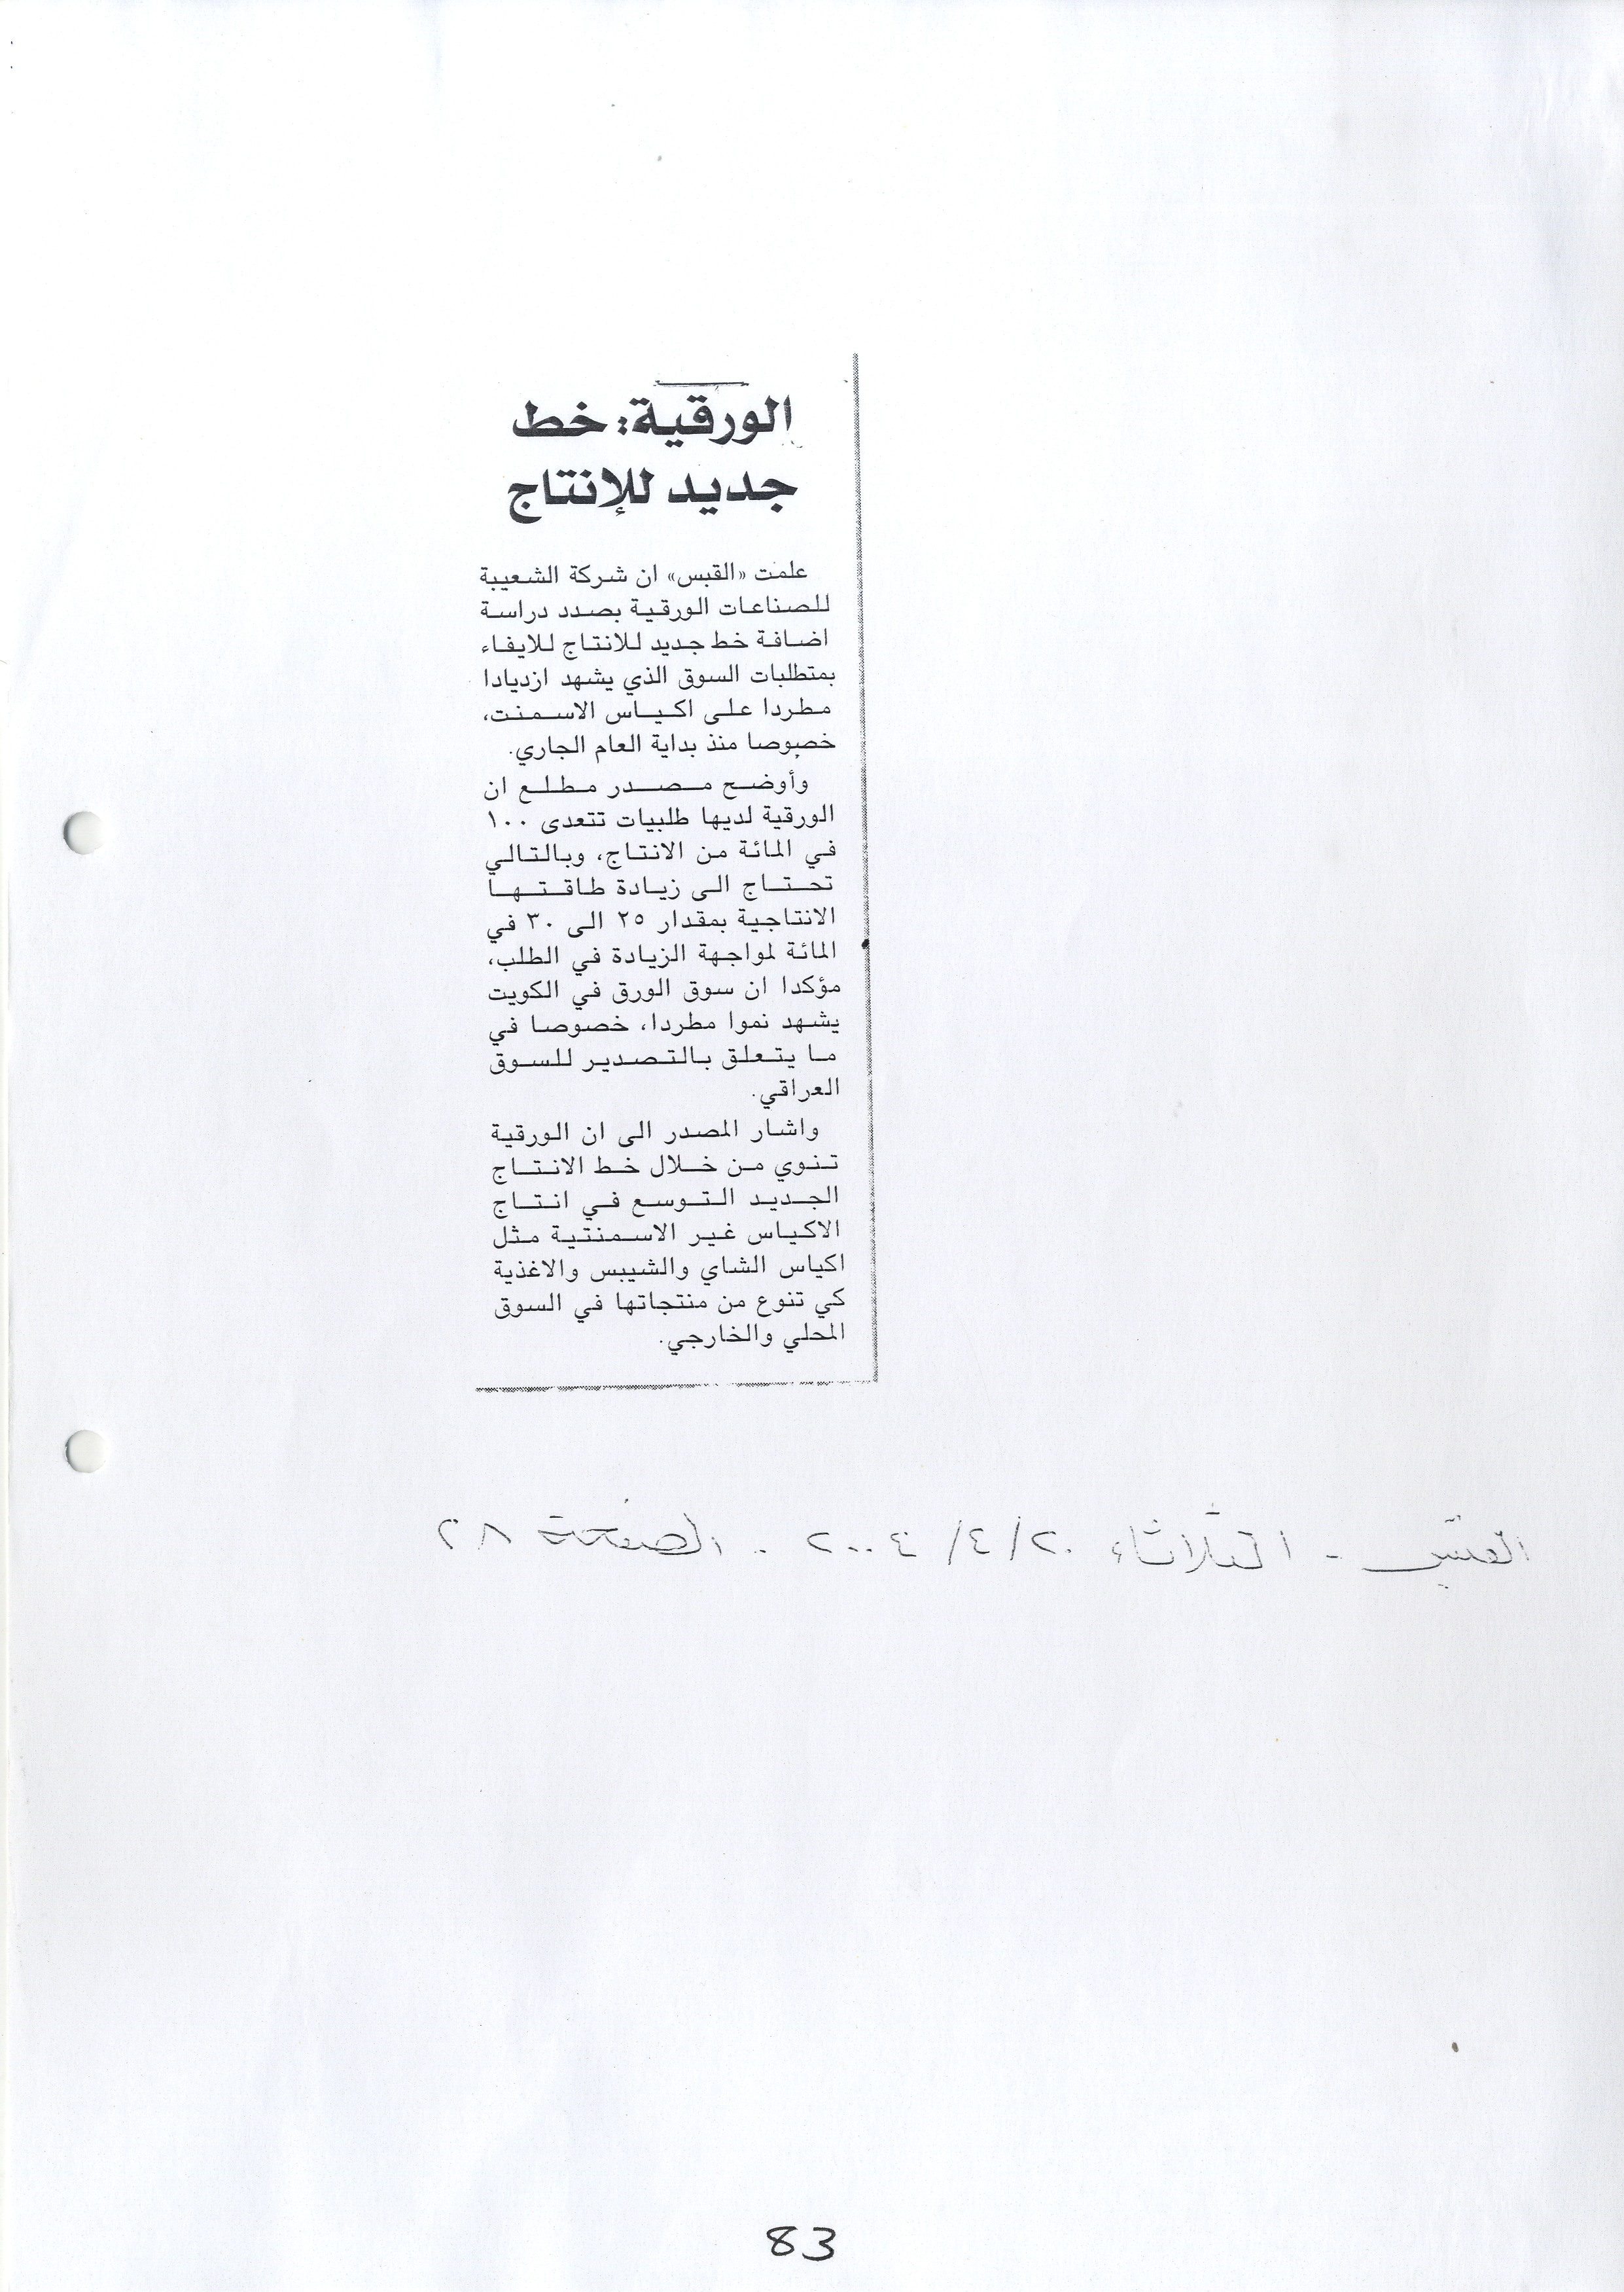 الورقية: خط
جديد للإنتاج
علمت «القبس» ان شركة الشعيبة
للصناعات الورقية بصدد دراسة
اضافة خط جديد للانتاج للايفاء
بمتطلبات السوق الذي يشهد ازديادا
مطردا على اكياس الاسمنت،
خصوصا منذ بداية العام الجاري.
وأوضح مصدر مطلع ان
الورقية لديها طلبيات تتعدى ١٠٠
في المائة من الانتاج، وبالتالي
تحتاج الى زيادة طاقتها
الانتاجية بمقدار ٢٥ الى ٣٠ في
المائة لمواجهة الزيادة في الطلب،
مؤكدا ان سوق الورق في الكويت
يشهد نموا مطردا، خصوصا في
ما يتعلق بالتصدير للسوق
العراقي.
واشار المصدر الى ان الورقية
تنوي من خلال خط الانتاج
الجديد التوسع في انتاج
الاكياس غير الاسمنتية مثل
اكياس الشاي والشيبس والاغذية
كي تنوع من منتجاتها في السوق
المحلي والخارجي.
القبس - الثلاثاء ٢٠/٤/٢٠٠٤ - الصفحة ٢٨
83